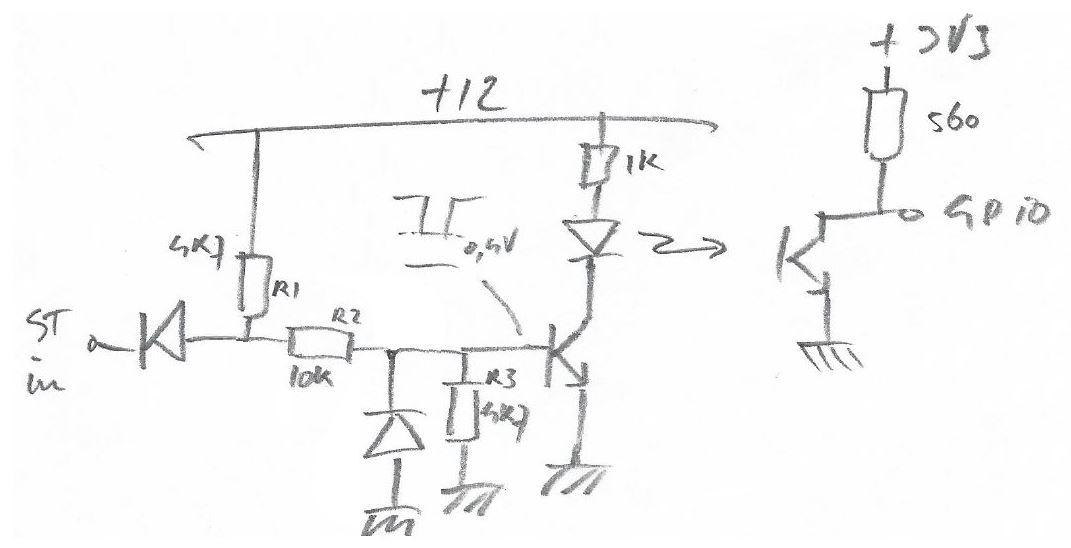 +12
+3V3
560
1K
GPIO
0,4V
4K7
R1
ST
in
R2
10K
R3
4K7